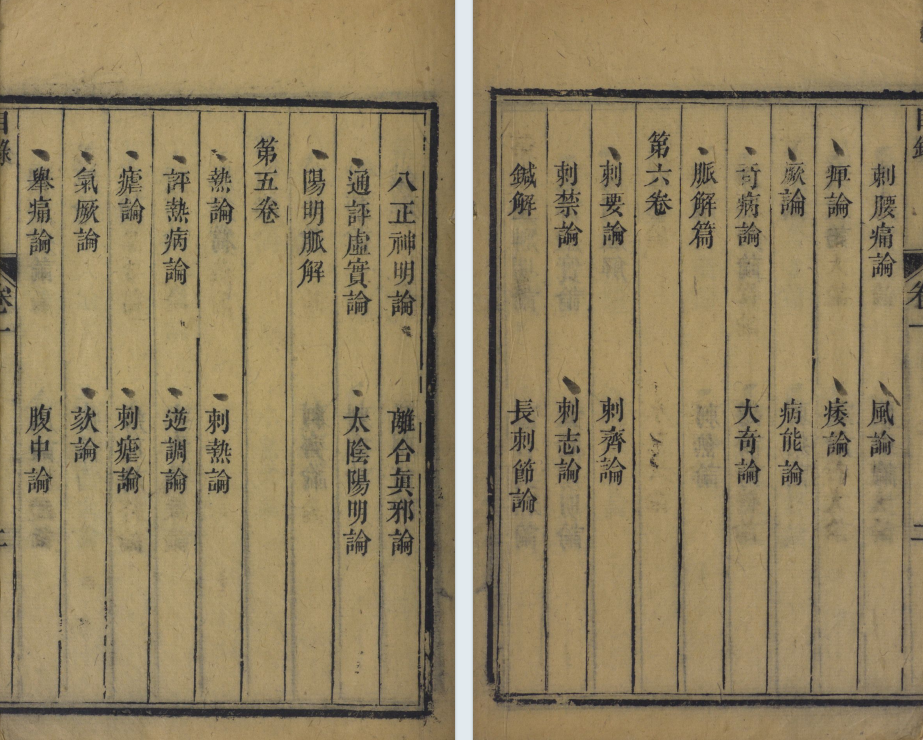 八正神明論 離合眞邪論
通評虛實論 太陰陽明論
陽明脈解
第五卷
熱論 刺熱論
評熱病論 逆調論
瘧論 刺瘧論
氣厥論 欬論
舉痛論 腹中論
目錄 卷一 二
目錄 卷一 二
刺腰痛論 風論
痺論 痿論
厥論 病能論
奇病論 大奇論
脈解篇
第六卷
刺要論 刺齊論
刺禁論 刺志論
鍼解 長刺節論